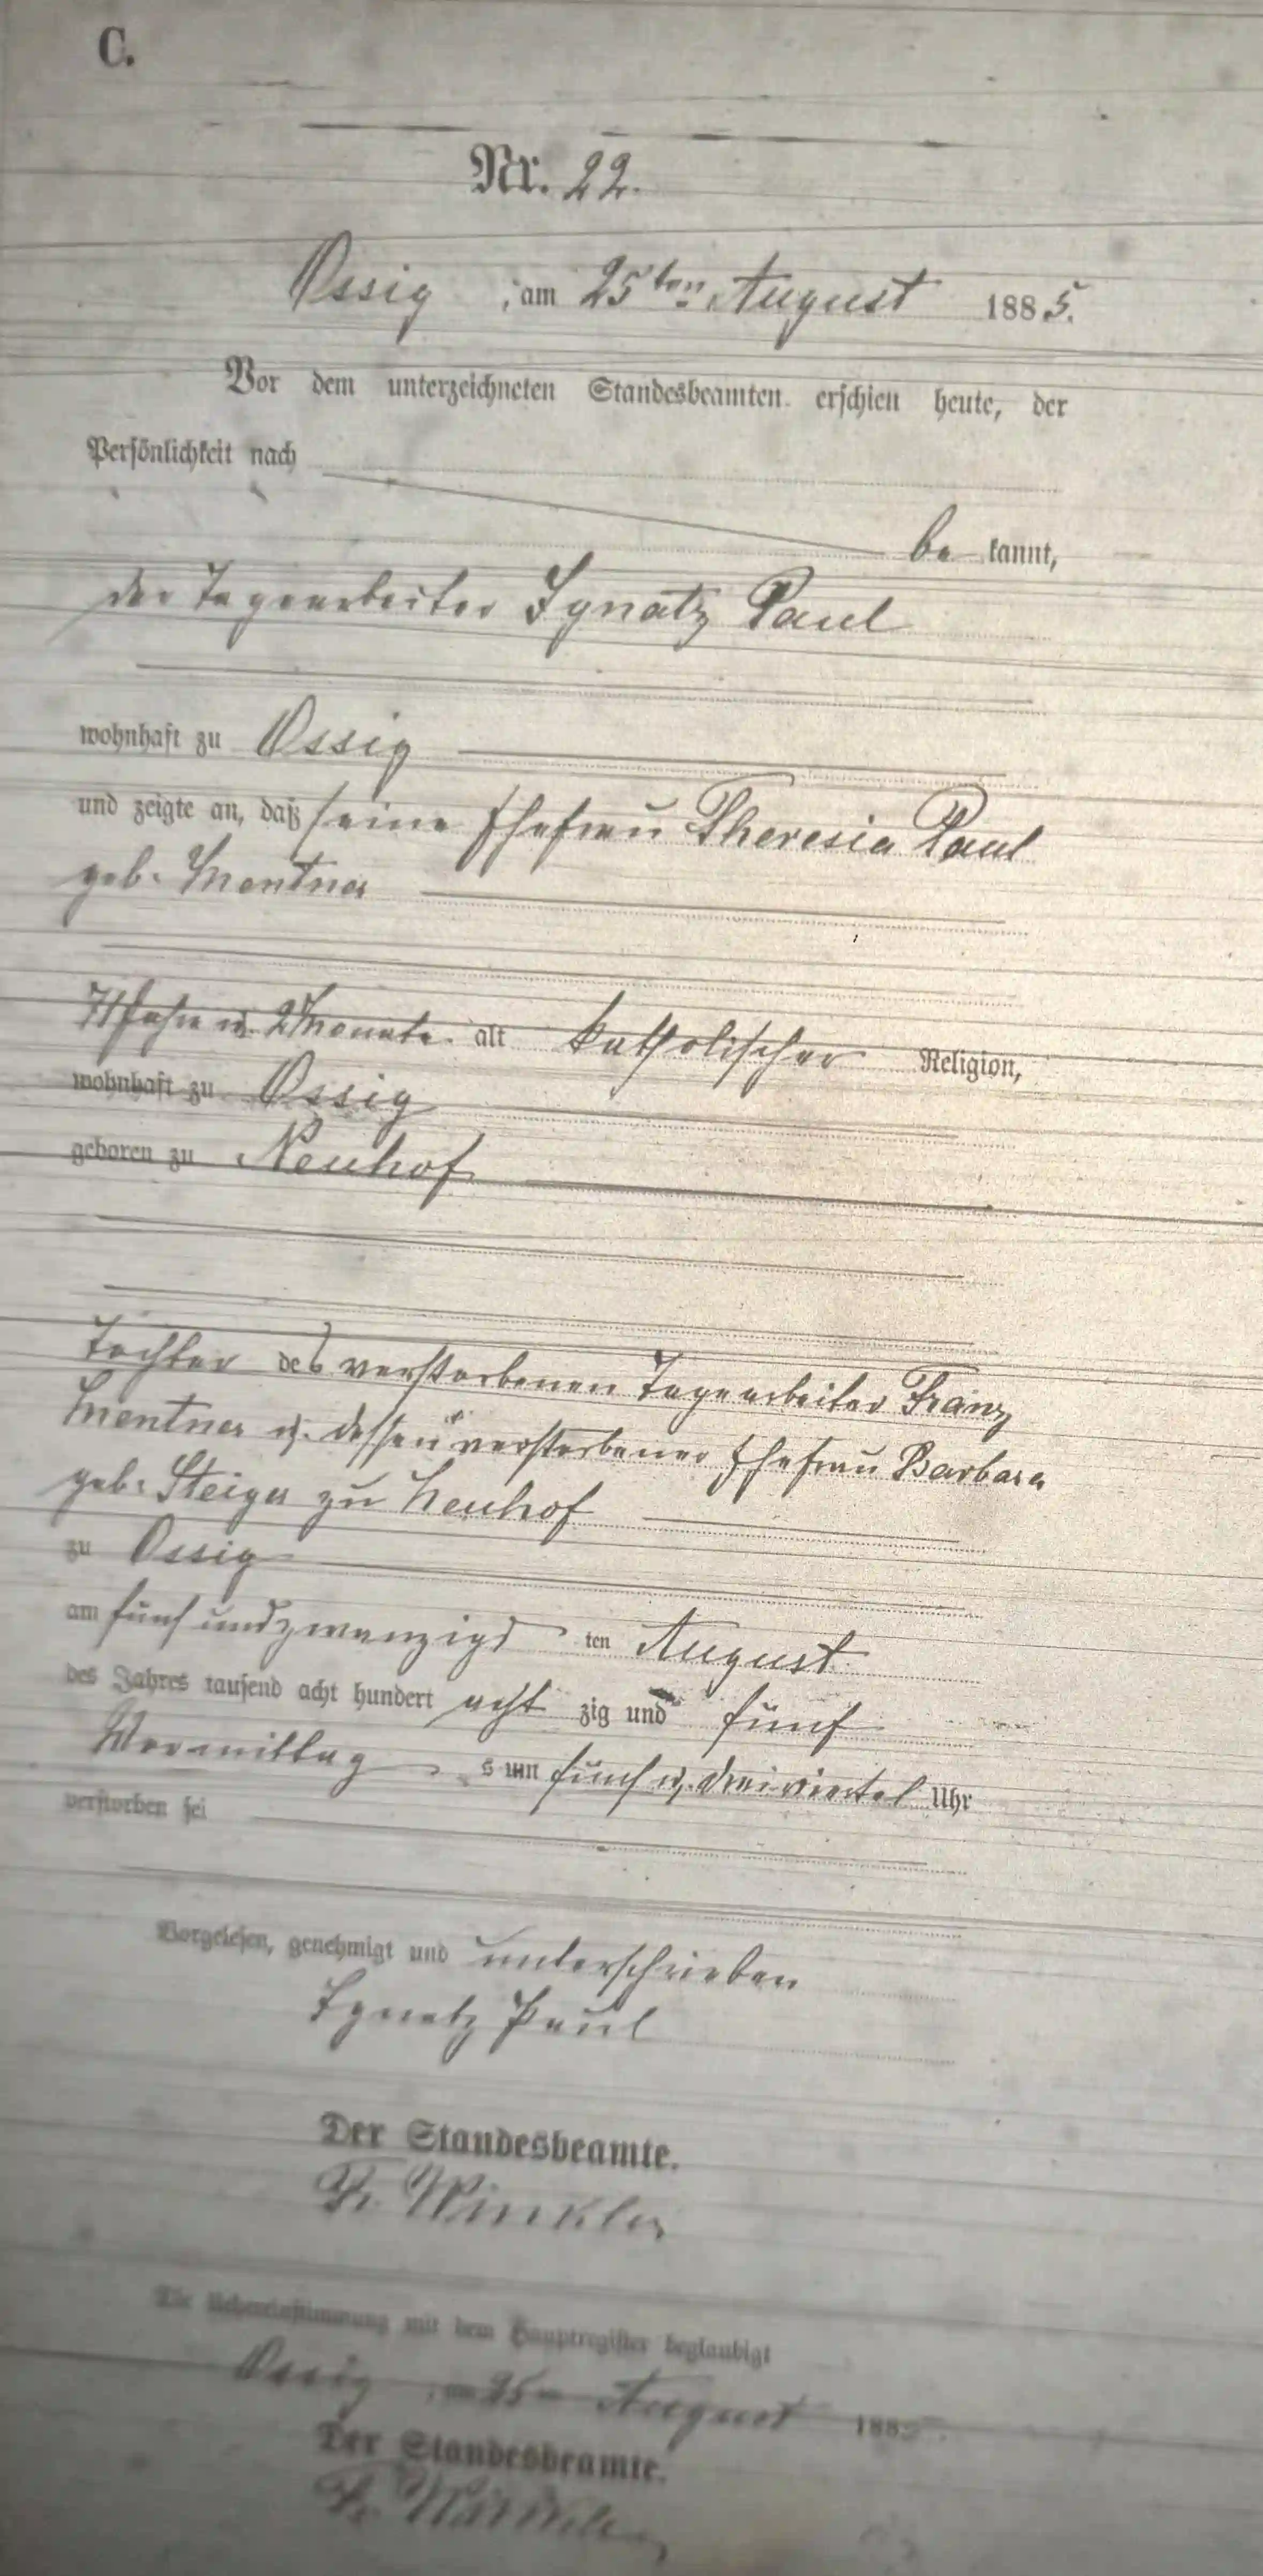 C.
Nr. 22.
Ossig, am 25ten August 1885.
Vor dem unterzeichneten Standesbeamten erschien heute, der
Persönlichkeit nach
be kannt,
der Tagearbeiter Ignatz Paul
wohnhaft zu Ossig
und zeigte an, daß seine Ehefrau Theresia Paul
geb. Mentner
71 Jahre u. 2 Monate alt katholischer Religion,
wohnhaft zu Ossig
geboren zu Neuhof
Tochter des verstorbenen Tagearbeiter Franz
Mentner u. dessen verstorbener Ehefrau Barbara
geb. Steiger zu Neuhof
zu Ossig
am fünf undzwanzigs ten August
des Jahres tausend acht hundert acht zig und fünf
Vormittag s um fünf u. dreiviertel Uhr
verstorben sei
Vorgelesen, genehmigt und unterschrieben
Ignatz Paul
Der Standesbeamte.
Fr. Winkler
Die Uebereinstimmung mit dem Hauptregister beglaubigt
Ossig, am 25ten August 1885.
Der Standesbeamte.
Fr. Winkler